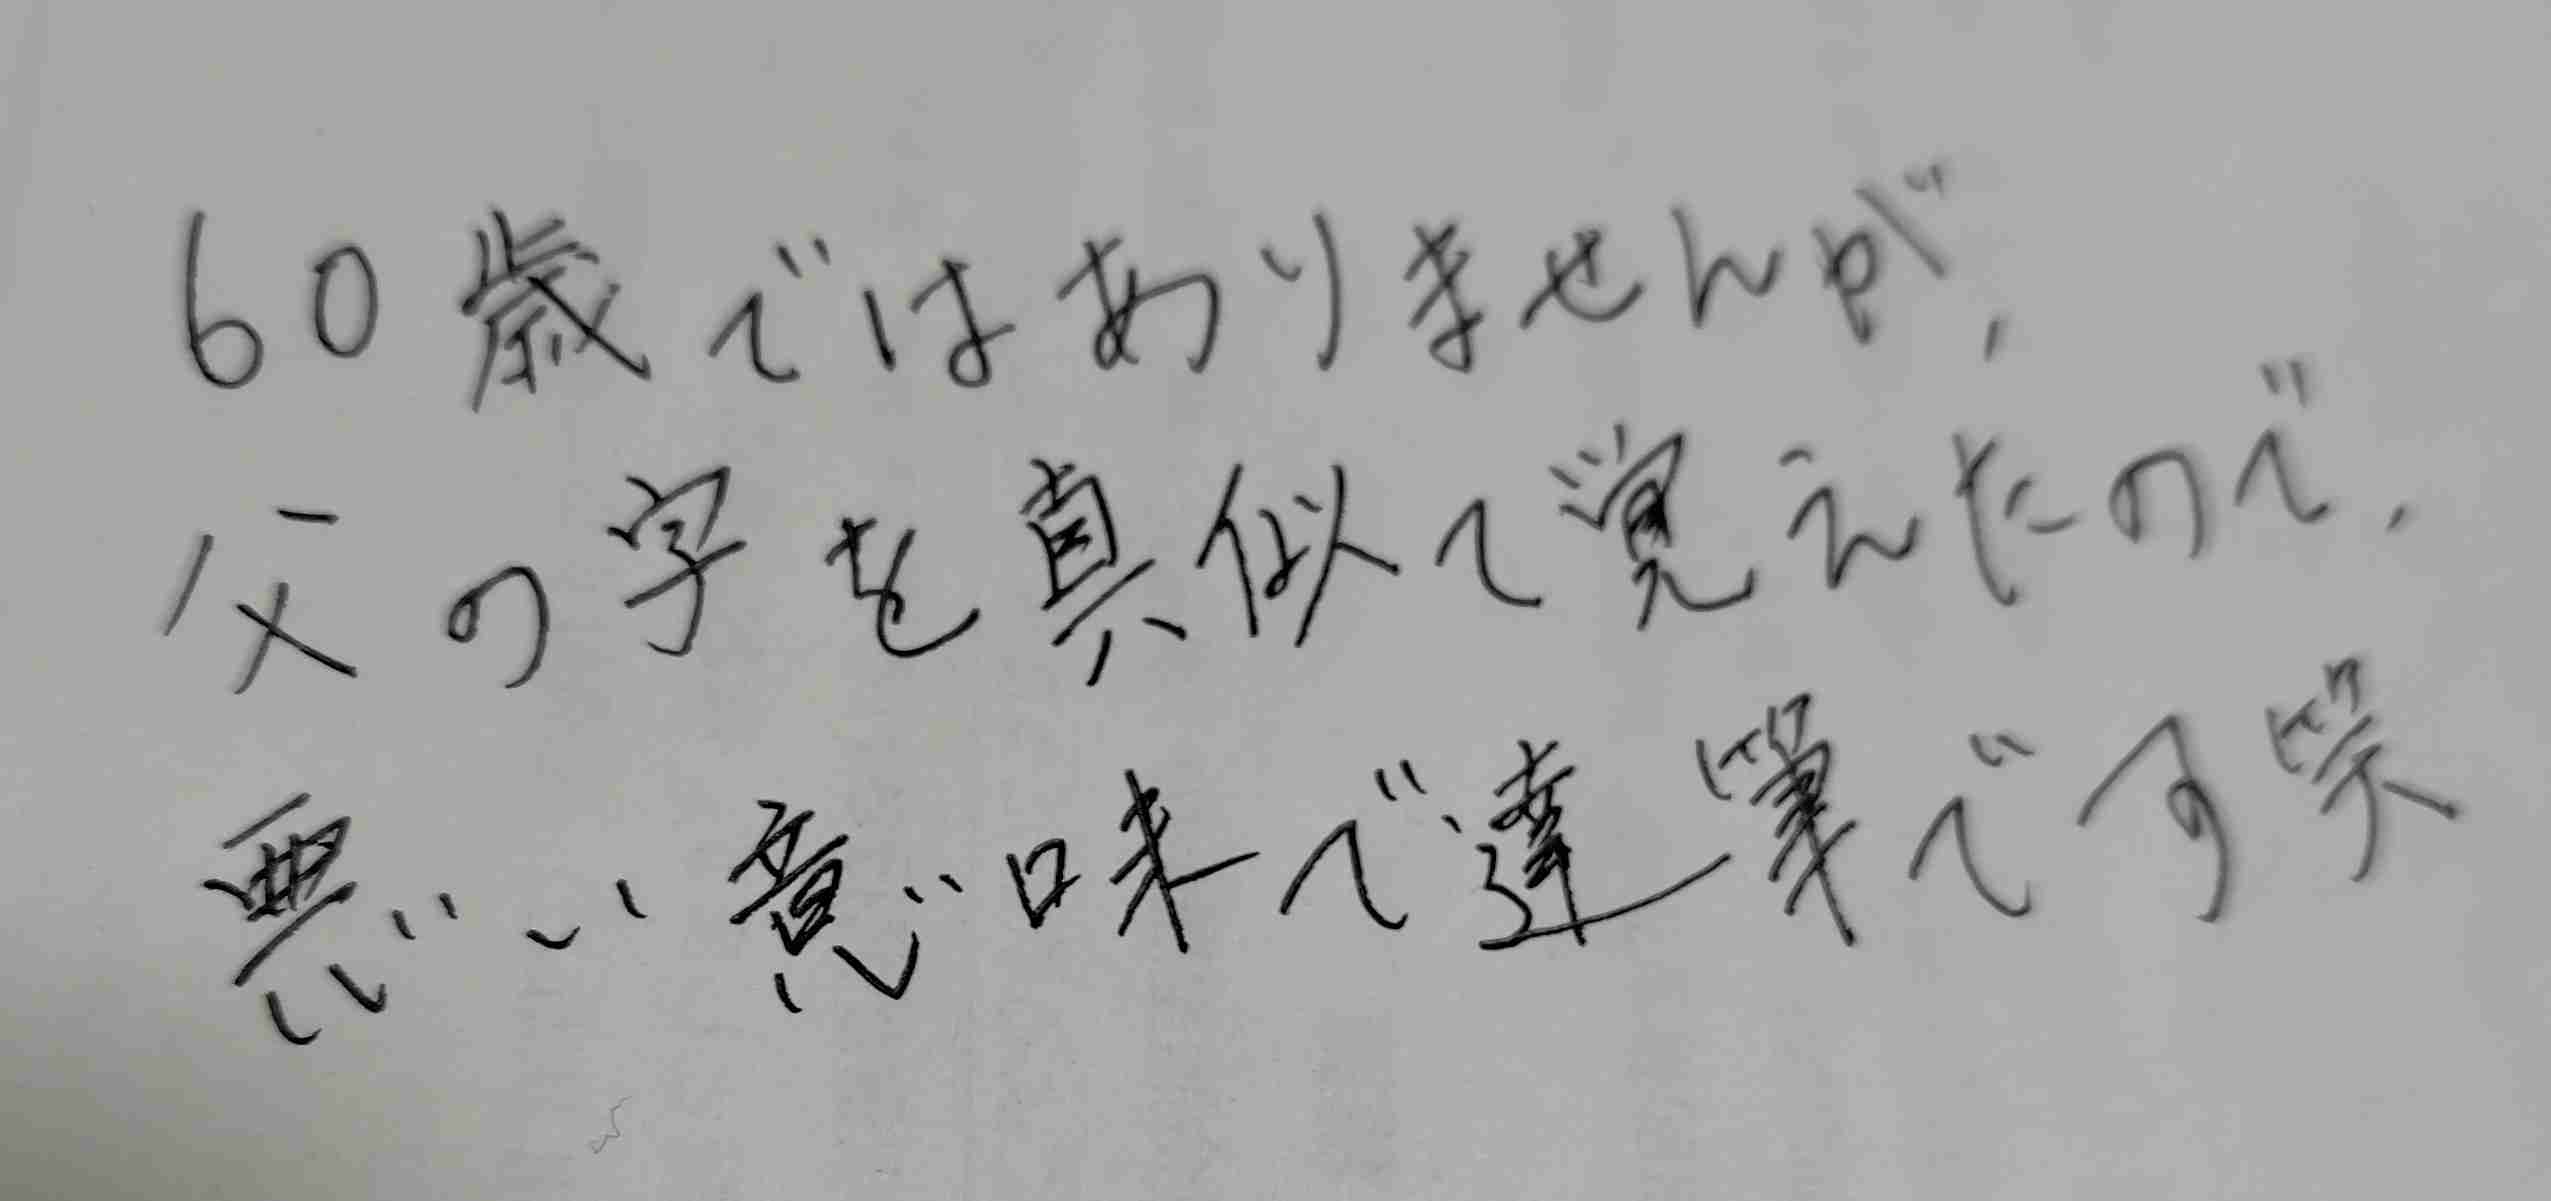 60歳ではありませんが、
父の字を真似て覚えたので、
悪い意味で達筆です笑